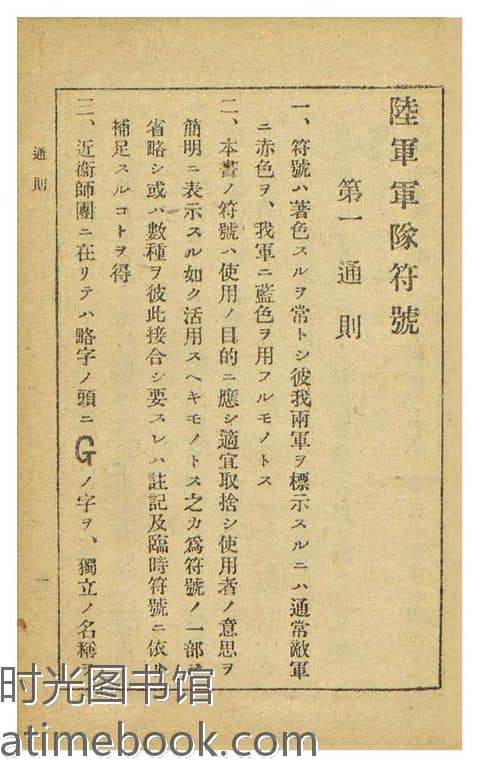 陸軍軍隊符號
第一 通則
一、符號ハ著色スルヲ常トシ彼我兩軍ヲ標示スルニハ通常敵軍
ニ赤色ヲ、我軍ニ藍色ヲ用フルモノトス
二、本書ノ符號ハ使用ノ目的ニ應シ適宜取捨シ使用者ノ意思ヲ
簡明ニ表示スル如ク活用スヘキモノトス之カ爲符號ノ一部ヲ
省略シ或ハ數種ヲ彼此接合シ要スレハ註記及臨時符號ニ依リ
補足スルコトヲ得
三、近衞師團ニ在リテハ略字ノ頭ニGノ字ヲ、獨立ノ名稱
通則
一
时光图书馆
atimebook.com